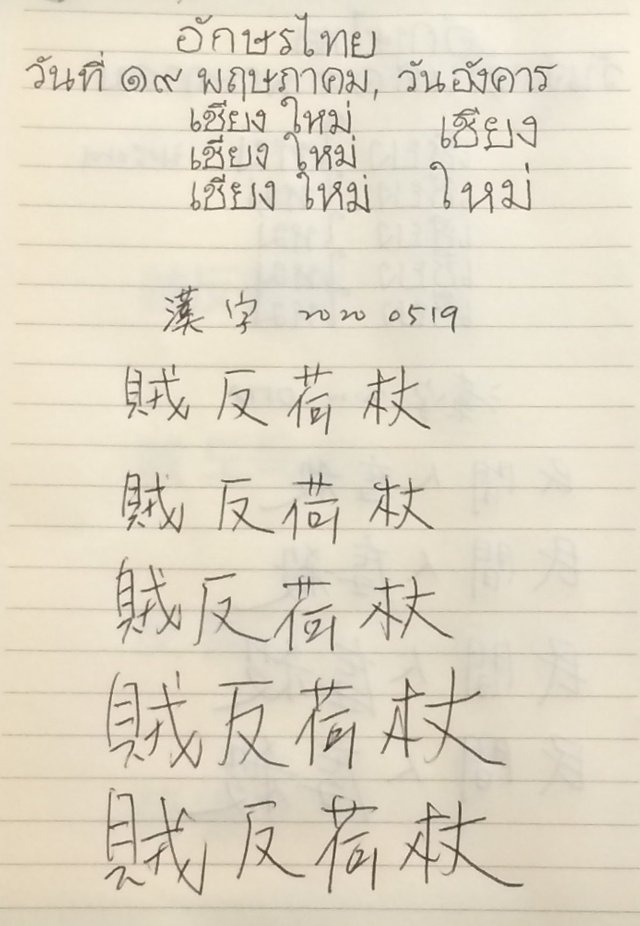 อักษรไทย
วันที่ ๑๙ พฤษภาคม, วันอังคาร
เชียง ใหม่
เชียง ใหม่ เชียง
เชียง ใหม่ ใหม่
漢字 2020 0519
賊反荷杖
賊反荷杖
賊反荷杖
賊反荷杖
賊反荷杖